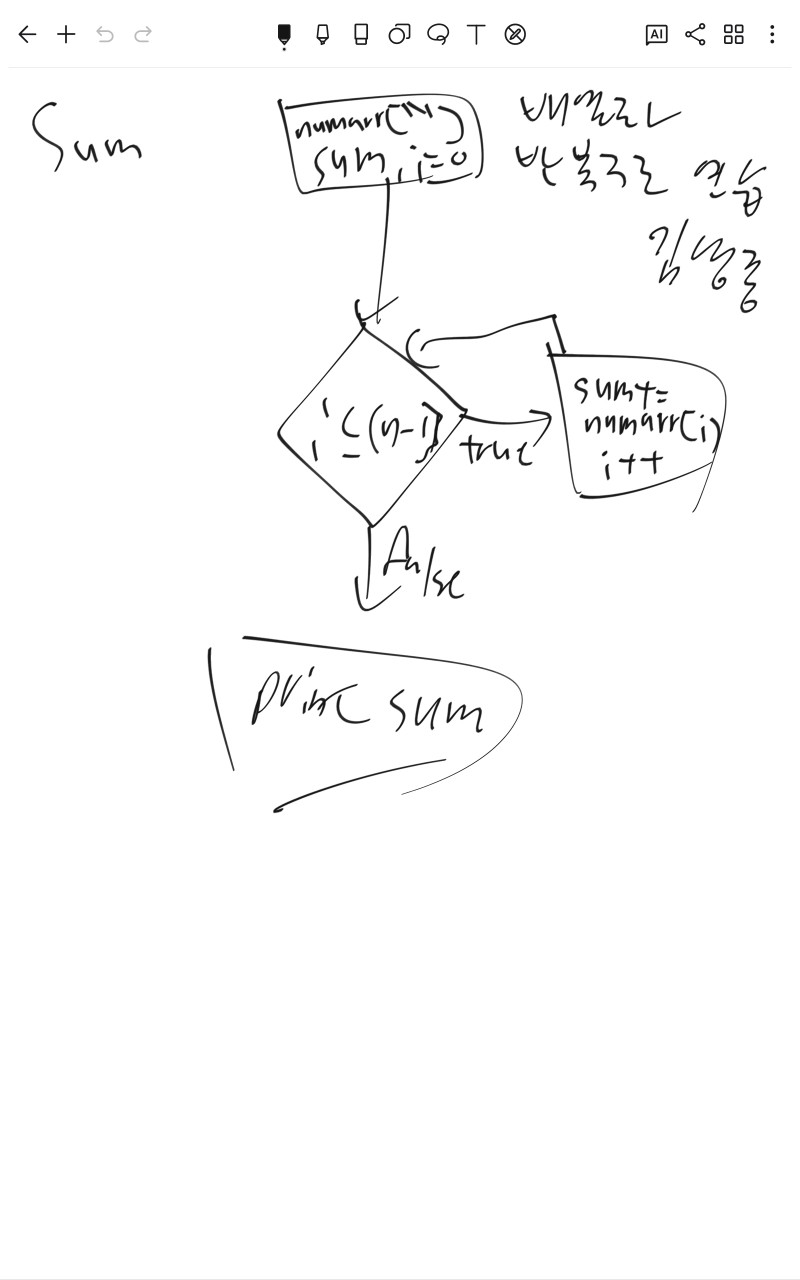 Sum
numarr(n)
sum, i=0
배열과
반복구조 연습
i ≤ (n-1)
true
sum+=
numarr(i)
i++
false
print sum